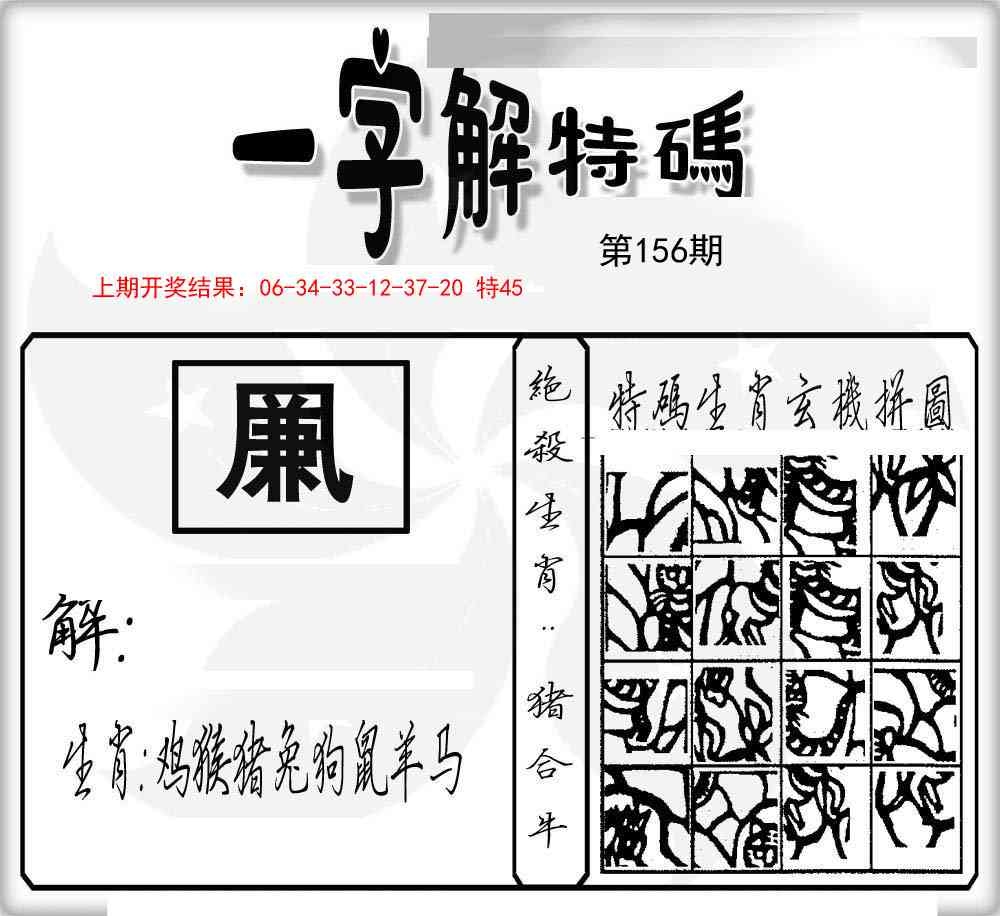 一字解特碼
第156期
上期开奖结果：06-34-33-12-37-20 特45
解：
生肖：鸡猴猪兔狗鼠羊马
絶殺生肖：猪合牛
特碼生肖玄機拼圖